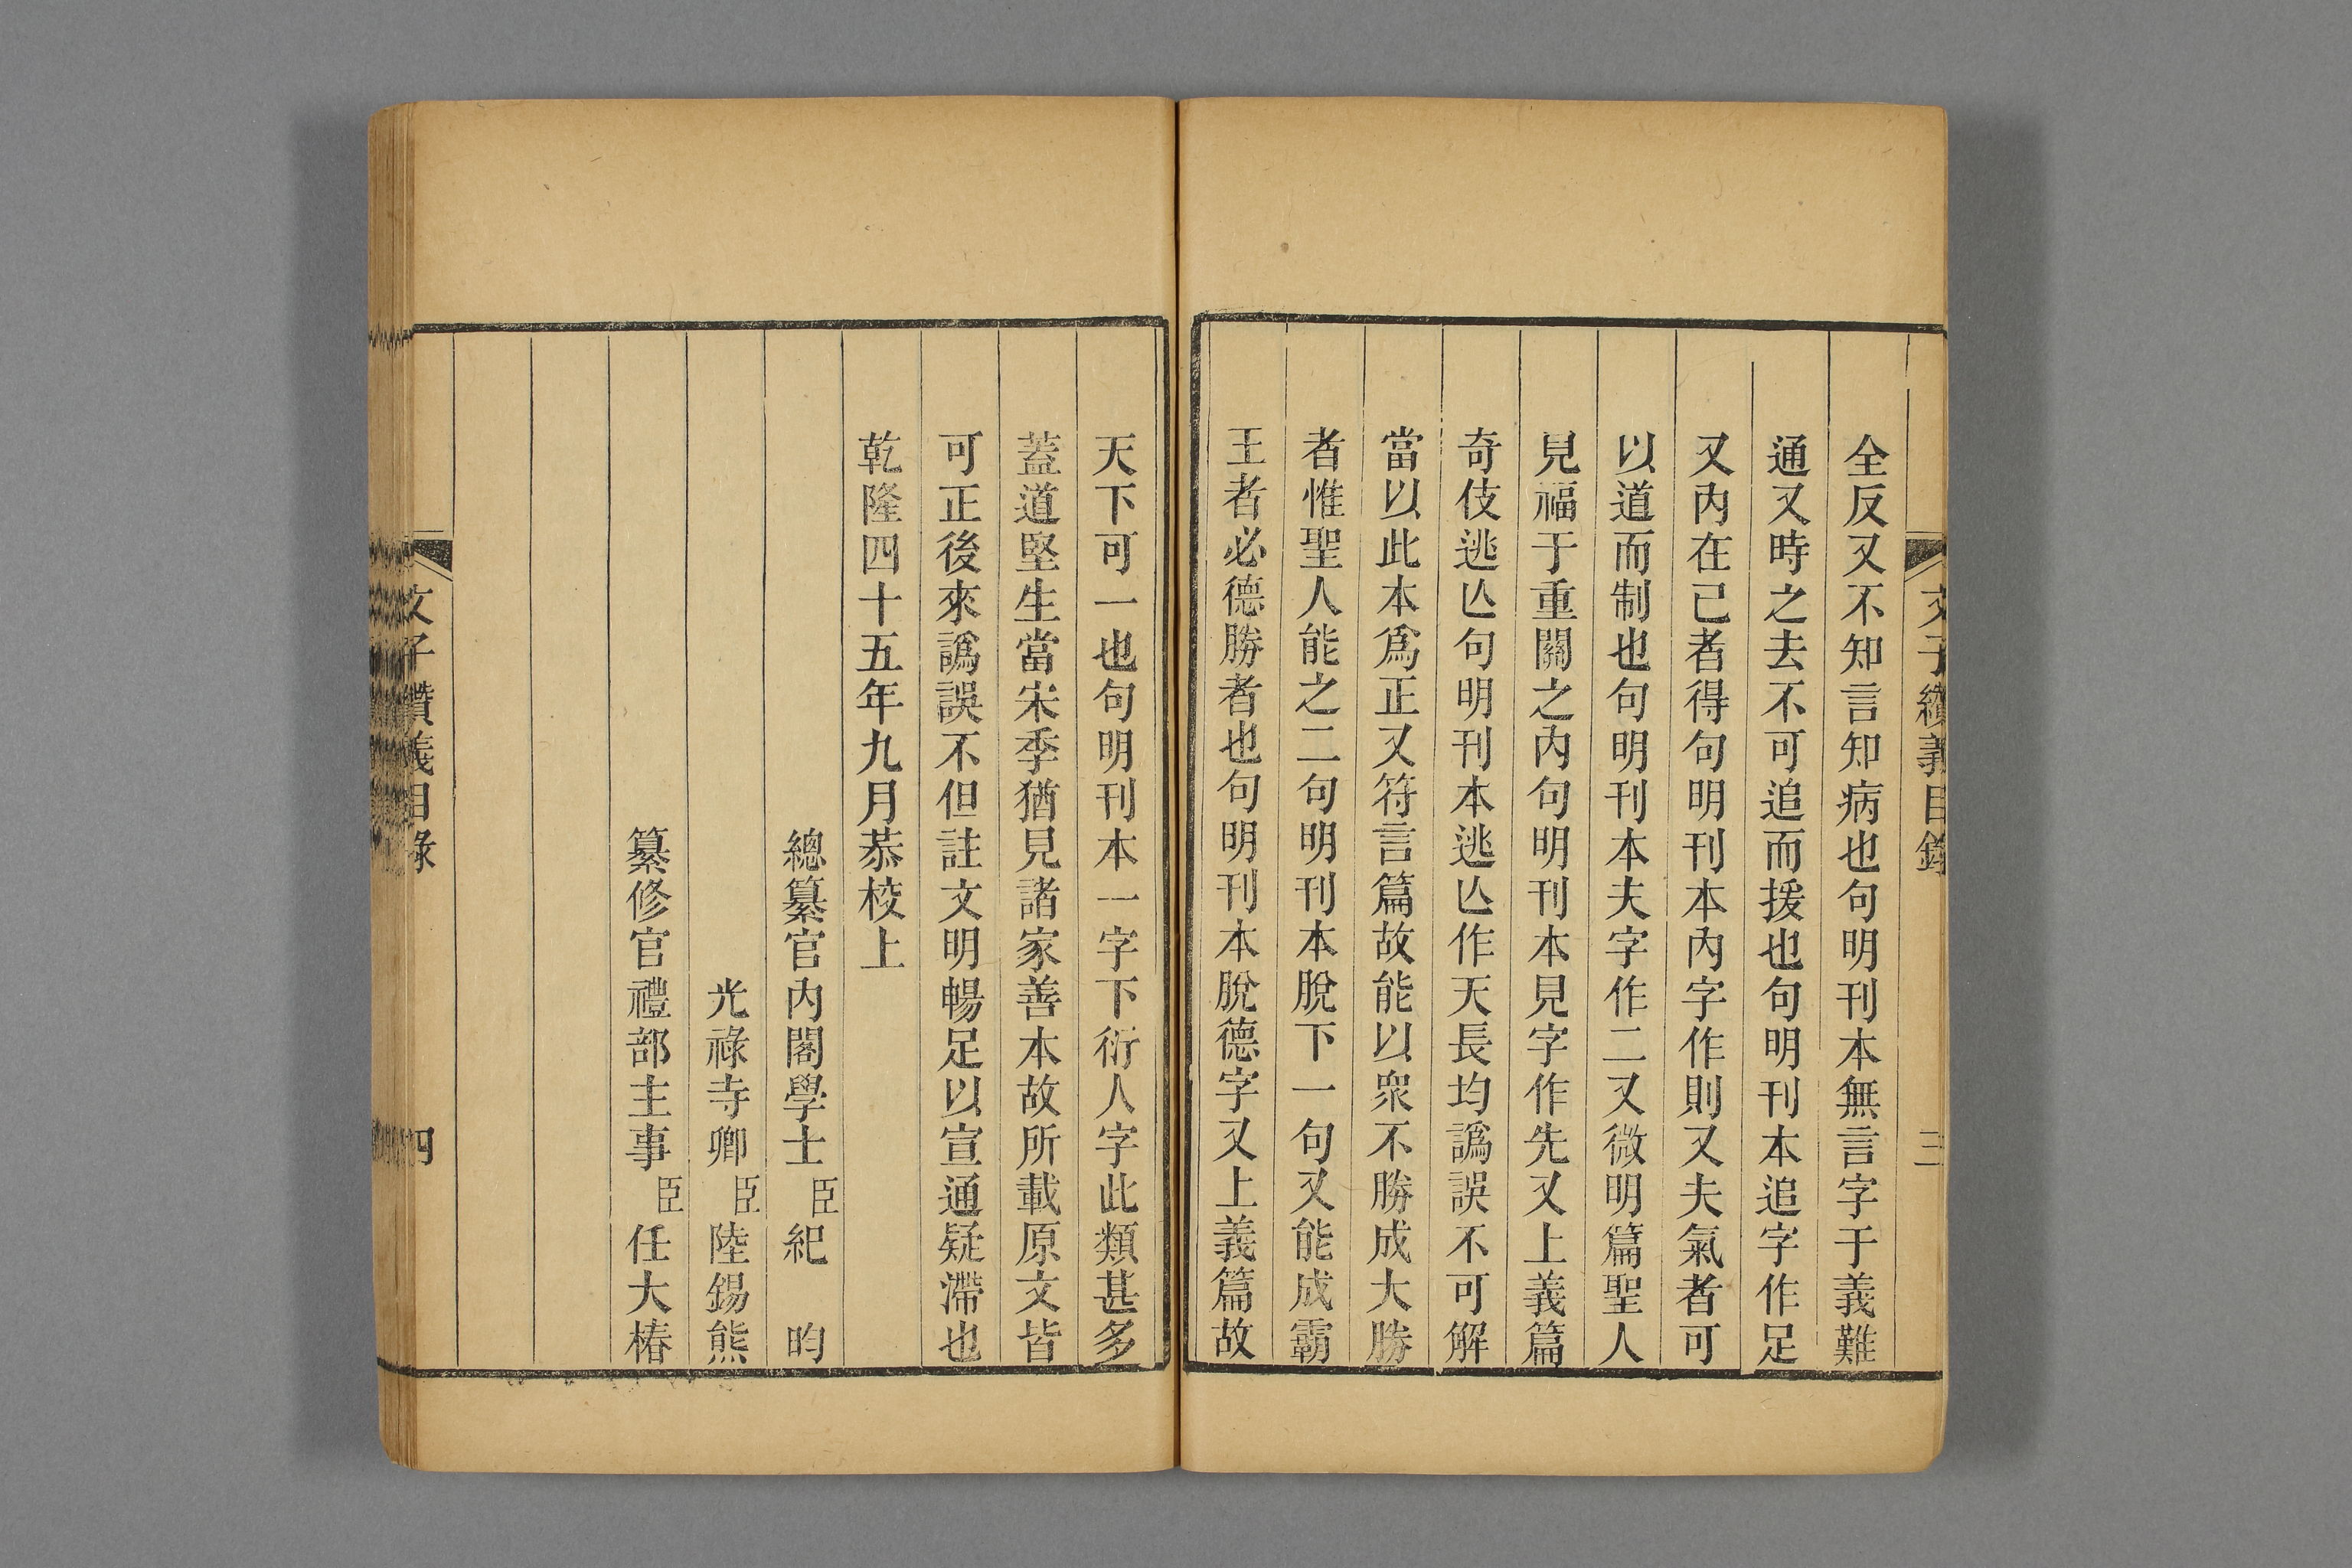 文子纘義目錄 三
全反又不知言知病也句明刊本無言字于義難
通又時之去不可追而援也句明刊本追字作足
又內在己者得句明刊本內字作則又夫氣者可
以道而制也句明刊本夫字作二又微明篇聖人
見福于重關之內句明刊本見字作先又上義篇
奇伎逃亾句明刊本逃亾作天長均譌誤不可解
當以此本爲正又符言篇故能以衆不勝成大勝
者惟聖人能之二句明刊本脫下一句又能成霸
王者必德勝者也句明刊本脫德字又上義篇故
天下可一也句明刊本一字下衍人字此類甚多
蓋道堅生當宋季猶見諸家善本故所載原文皆
可正後來譌誤不但註文明暢足以宣通疑滯也
乾隆四十五年九月恭校上
總纂官內閣學士臣紀 昀
光祿寺卿臣陸錫熊
纂修官禮部主事臣任大椿
文子纘義目錄 四